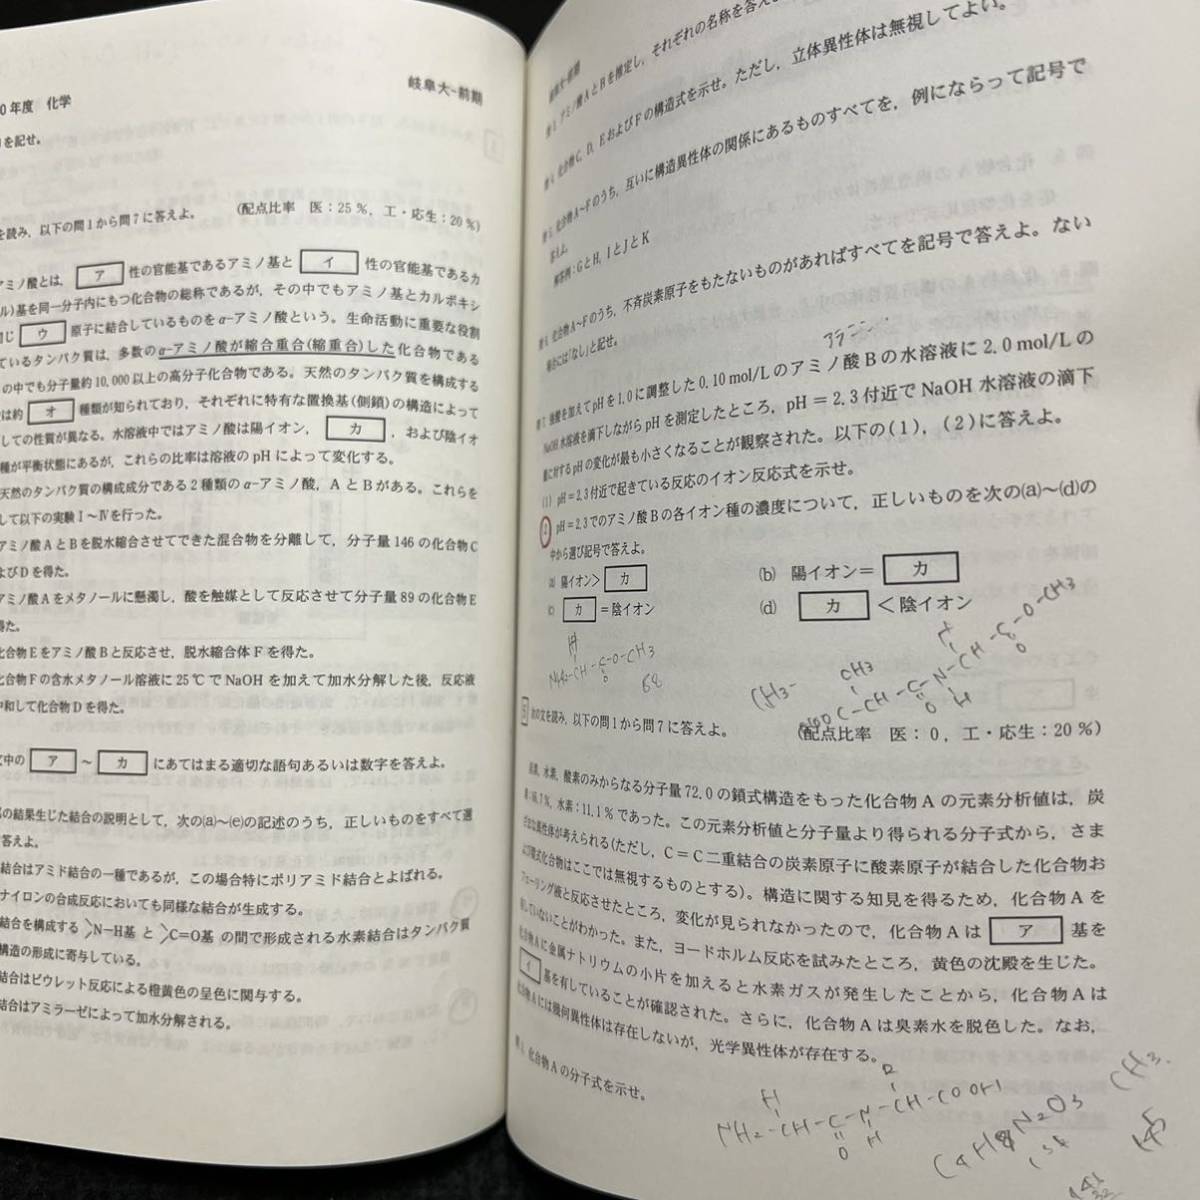 0年度 化学
岐阜大-前期
を記せ。
を読み，以下の問1から問7に答えよ。 (配点比率 医：25％，工・応生：20％)
アミノ酸とは， ア 性の官能基であるアミノ基と イ 性の官能基であるカ
ル)基を同一分子内にもつ化合物の総称であるが，その中でもアミノ基とカルボキシ
同じ ウ 原子に結合しているものをα-アミノ酸という。生命活動に重要な役割
ているタンパク質は，多数のα-アミノ酸が縮合重合(縮重合)した化合物である
の中でも分子量約10,000以上の高分子化合物である。天然のタンパク質を構成する
は約 オ 種類が知られており，それぞれに特有な置換基(側鎖)の構造によって
しての性質が異なる。水溶液中ではアミノ酸は陽イオン， カ ，および陰イオ
種が平衡状態にあるが，これらの比率は溶液のpHによって変化する。
天然のタンパク質の構成成分である2種類のα-アミノ酸，AとBがある。これらを
して以下の実験Ⅰ～Ⅳを行った。
アミノ酸AとBを脱水縮合させてできた混合物を分離して，分子量146の化合物C
よびDを得た。
アミノ酸Aをメタノールに懸濁し，酸を触媒として反応させて分子量89の化合物E
得た。
化合物Eをアミノ酸Bと反応させ，脱水縮合体Fを得た。
化合物Fの含水メタノール溶液に25℃でNaOHを加えて加水分解した後，反応液
中和して化合物Dを得た。
文中の ア ～ カ にあてはまる適切な語句あるいは数字を答えよ。
の結果生じた結合の説明として，次の(a)～(e)の記述のうち，正しいものをすべて選
答えよ。
結合はアミド結合の一種であるが，この場合特にポリアミド結合とよばれる。
ナイロンの合成反応においても同様な結合が生成する。
結合を構成する N-H基 と C=O基 の間で形成される水素結合はタンパク質
構造の形成に寄与している。
結合はビウレット反応による橙黄色の呈色に関与する。
結合はアミラーゼによって加水分解される。
岐阜大-前期
問3．アミノ酸AとBを推定し，それぞれの名称を答え
問4．化合物C，D，EおよびFの構造式を示せ。ただし，立体異性体は無視してよい。
問5．化合物A～Fのうち，互いに構造異性体の関係にあるものすべてを，例にならって記号で
答えよ。
解答例：GとH，IとJとK
問6．化合物A～Fのうち，不斉炭素原子をもたないものがあればすべてを記号で答えよ。ない
場合には「なし」と記せ。
アラニン
問7．強酸を加えてpHを1.0に調整した0.10 mol/Lのアミノ酸Bの水溶液に2.0 mol/Lの
NaOH水溶液を滴下しながらpHを測定したところ，pH＝2.3付近でNaOH水溶液の滴下
量に対するpHの変化が最も小さくなることが観察された。以下の(1)，(2)に答えよ。
(1) pH＝2.3付近で起きている反応のイオン反応式を示せ。
2 pH＝2.3でのアミノ酸Bの各イオン種の濃度について，正しいものを次の(a)～(d)の
中から選び記号で答えよ。
(a) 陽イオン＞ カ (b) 陽イオン＝ カ
(c) カ ＝陰イオン (d) カ ＜陰イオン
H
NH2-CH-C-O-CH3
O
68
CH3-
CH3
C-CH-C-N-CH-C-O-CH3
O H O
5 次の文を読み，以下の問1から問7に答えよ。 (配点比率 医：0，工・応生：20％)
炭素，水素，酸素のみからなる分子量72.0の鎖式構造をもった化合物Aの元素分析値は，炭
素：66.7％，水素：11.1％であった。この元素分析値と分子量より得られる分子式から，さま
ざまな異性体が考えられる(ただし，C＝C二重結合の炭素原子に酸素原子が結合した化合物お
よび環式化合物はここでは無視するものとする)。構造に関する知見を得るため，化合物Aを
フェーリング液と反応させたところ，変化が見られなかったので，化合物Aは ア 基を
有していないことがわかった。また，ヨードホルム反応を試みたところ，黄色の沈殿を生じた。
化合物Aに金属ナトリウムの小片を加えると水素ガスが発生したことから，化合物Aは
イ 基を有していることが確認された。さらに，化合物Aは臭素水を脱色した。なお，
化合物Aには幾何異性体は存在しないが，光学異性体が存在する。
問1．化合物Aの分子式を示せ。
H R
NH2-CH-C-N-CH-COOH
O H
C4H8N2O3
CH3